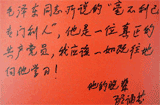 毛泽东同志所说的"毫不利己
专门利人",他是一位真正的
共产党员,我应该一如既往地
向他学习!
他的晚辈